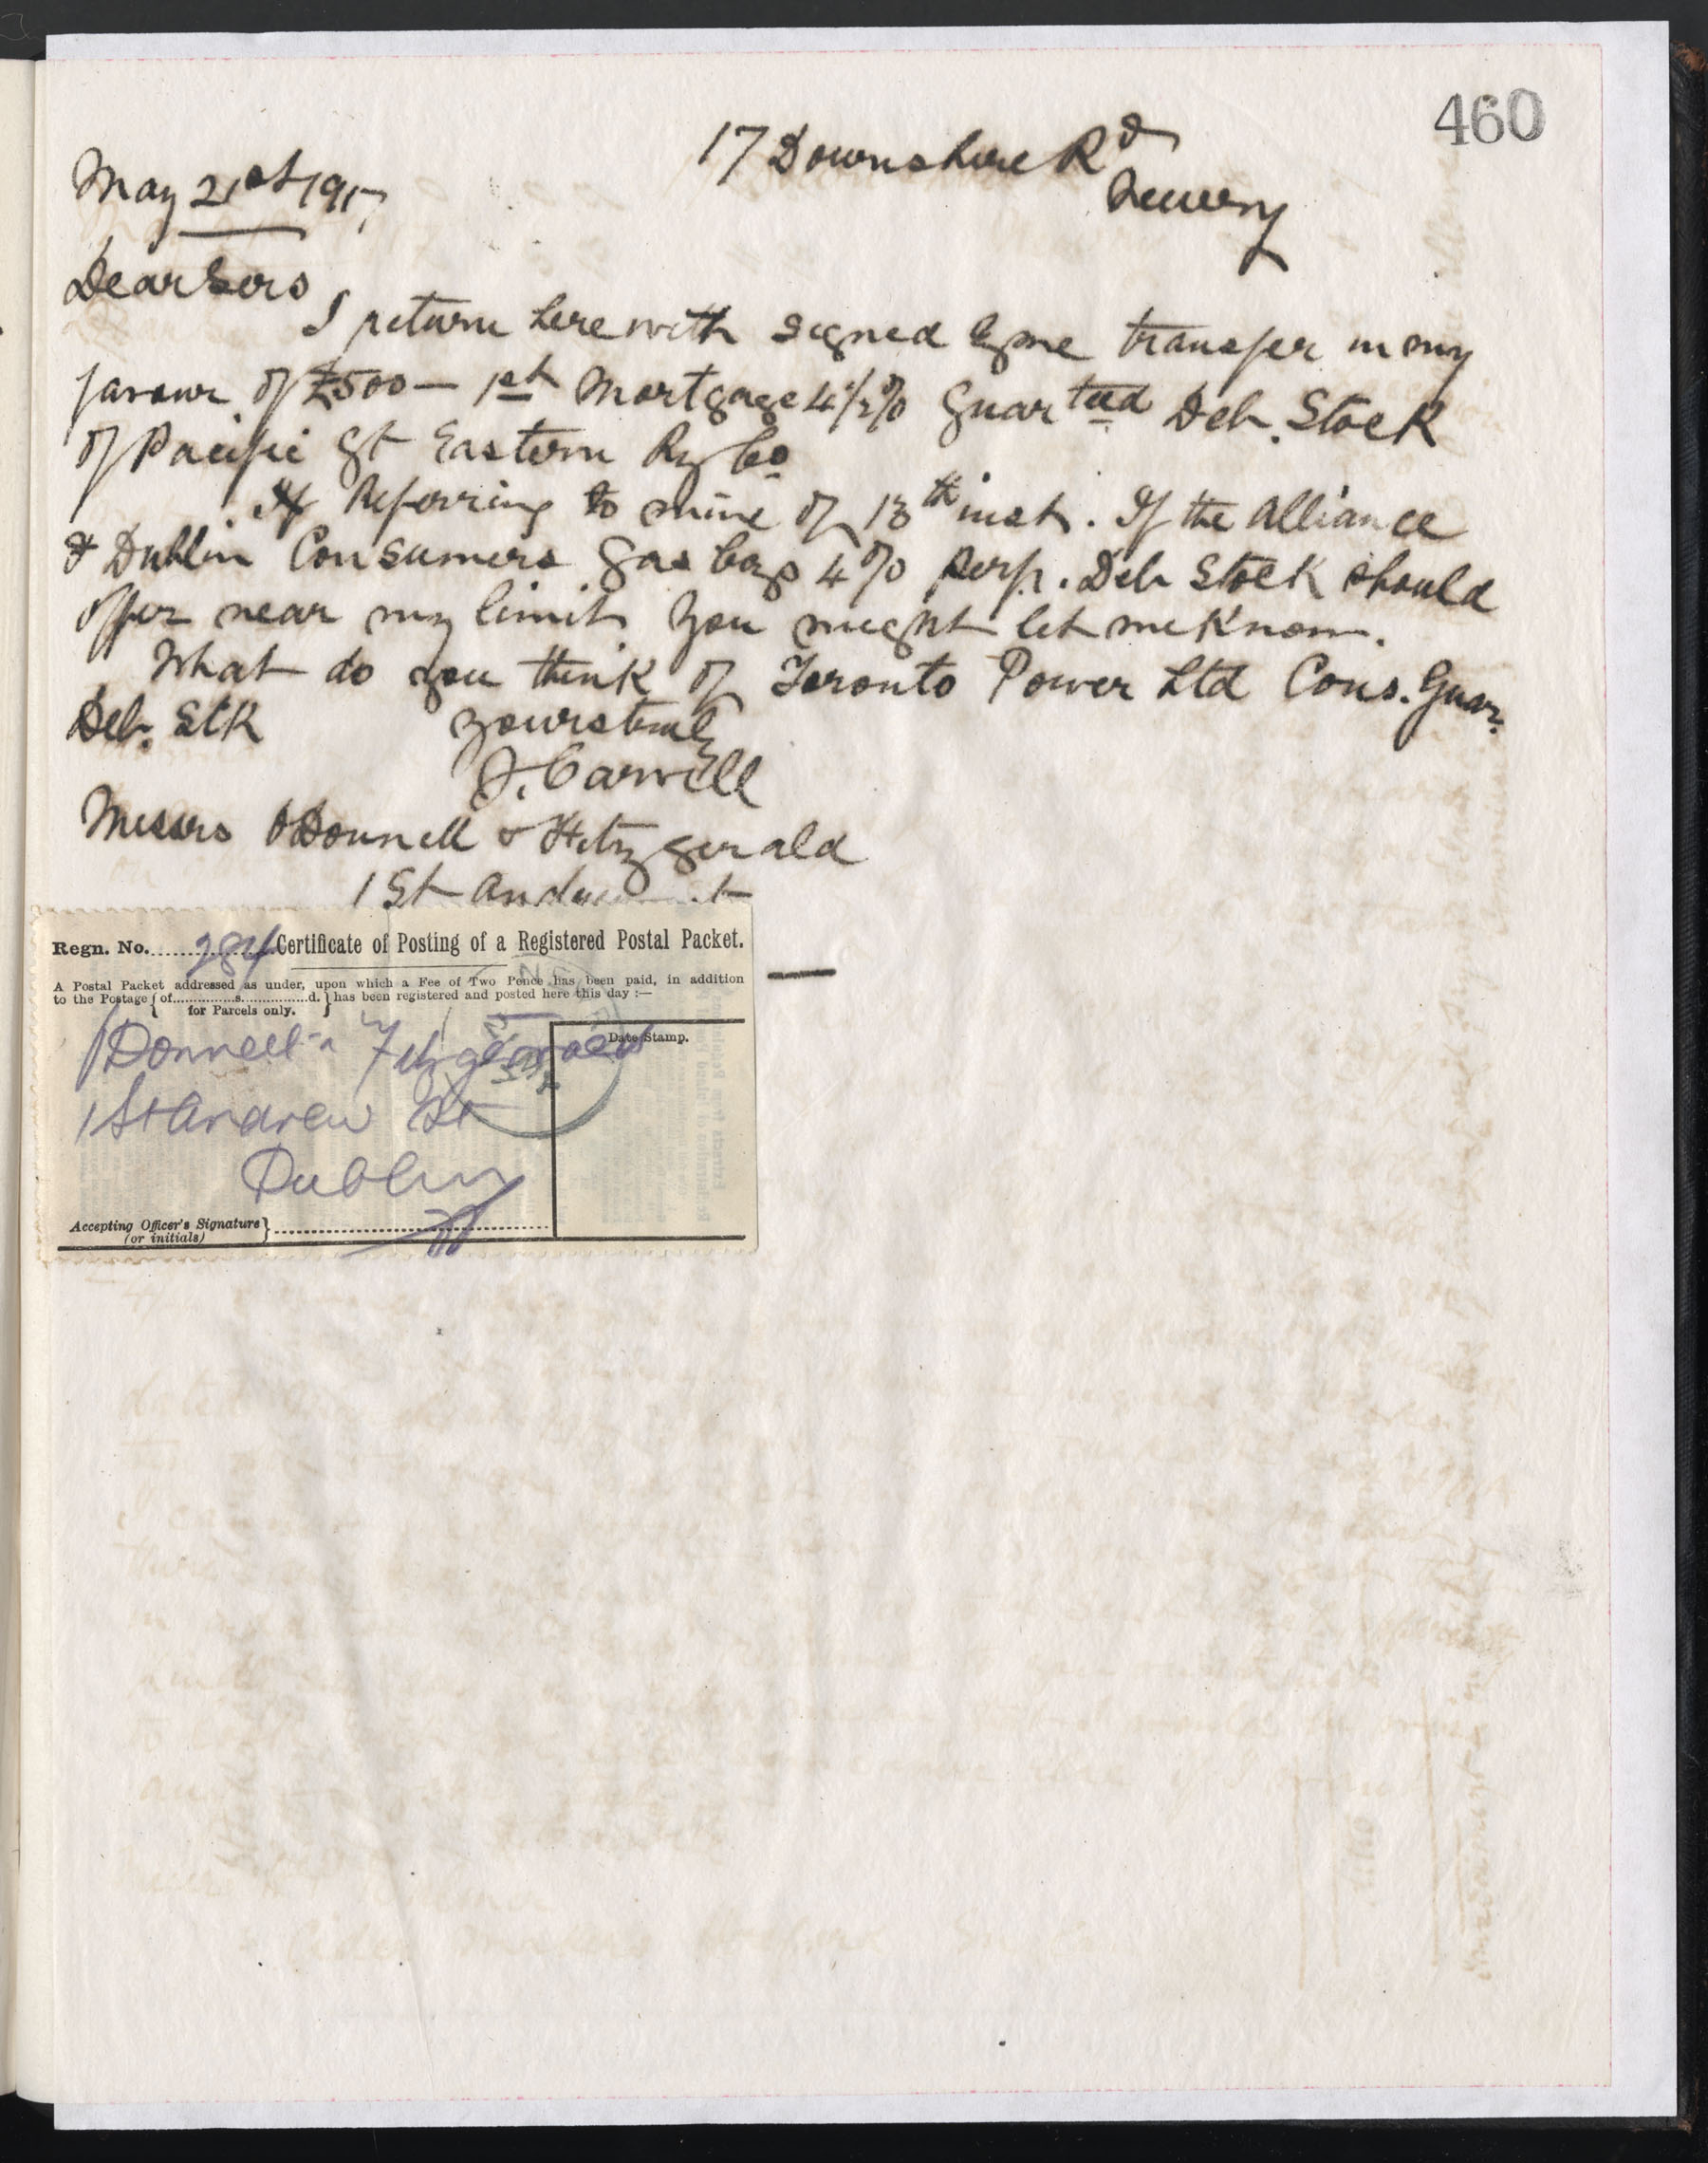 460
17 Downshire Rd
Newry
May 21st 1917
Dear Sirs
I return herewith signed by me transfer in my
favour of £500 — 1st Mortgage 4½% Guarteed Deb. Stock
of Pacific Gt Eastern Ry Co
Referring to mine of 18th inst. If the Alliance
& Dublin Consumers Gas Coys 4% perp. Deb Stock should
offer near my limit you might let me know.
What do you think of Toronto Power Ltd Cons. Guar.
Deb. Stk
Yours truly
J. Carvill
Messrs O'Donnell & Fitzgerald
1 St
Regn. No. 284 Certificate of Posting of a Registered Postal Packet.
A Postal Packet addressed as under, upon which a Fee of Two Pence has been paid, in addition
to the Postage { of s. d. } has been registered and posted here this day :—
for Parcels only.
O'Donnell & Fitzgerald
Date Stamp.
1 St Andrew St
Dublin
Accepting Officer's Signature }
(or initials)